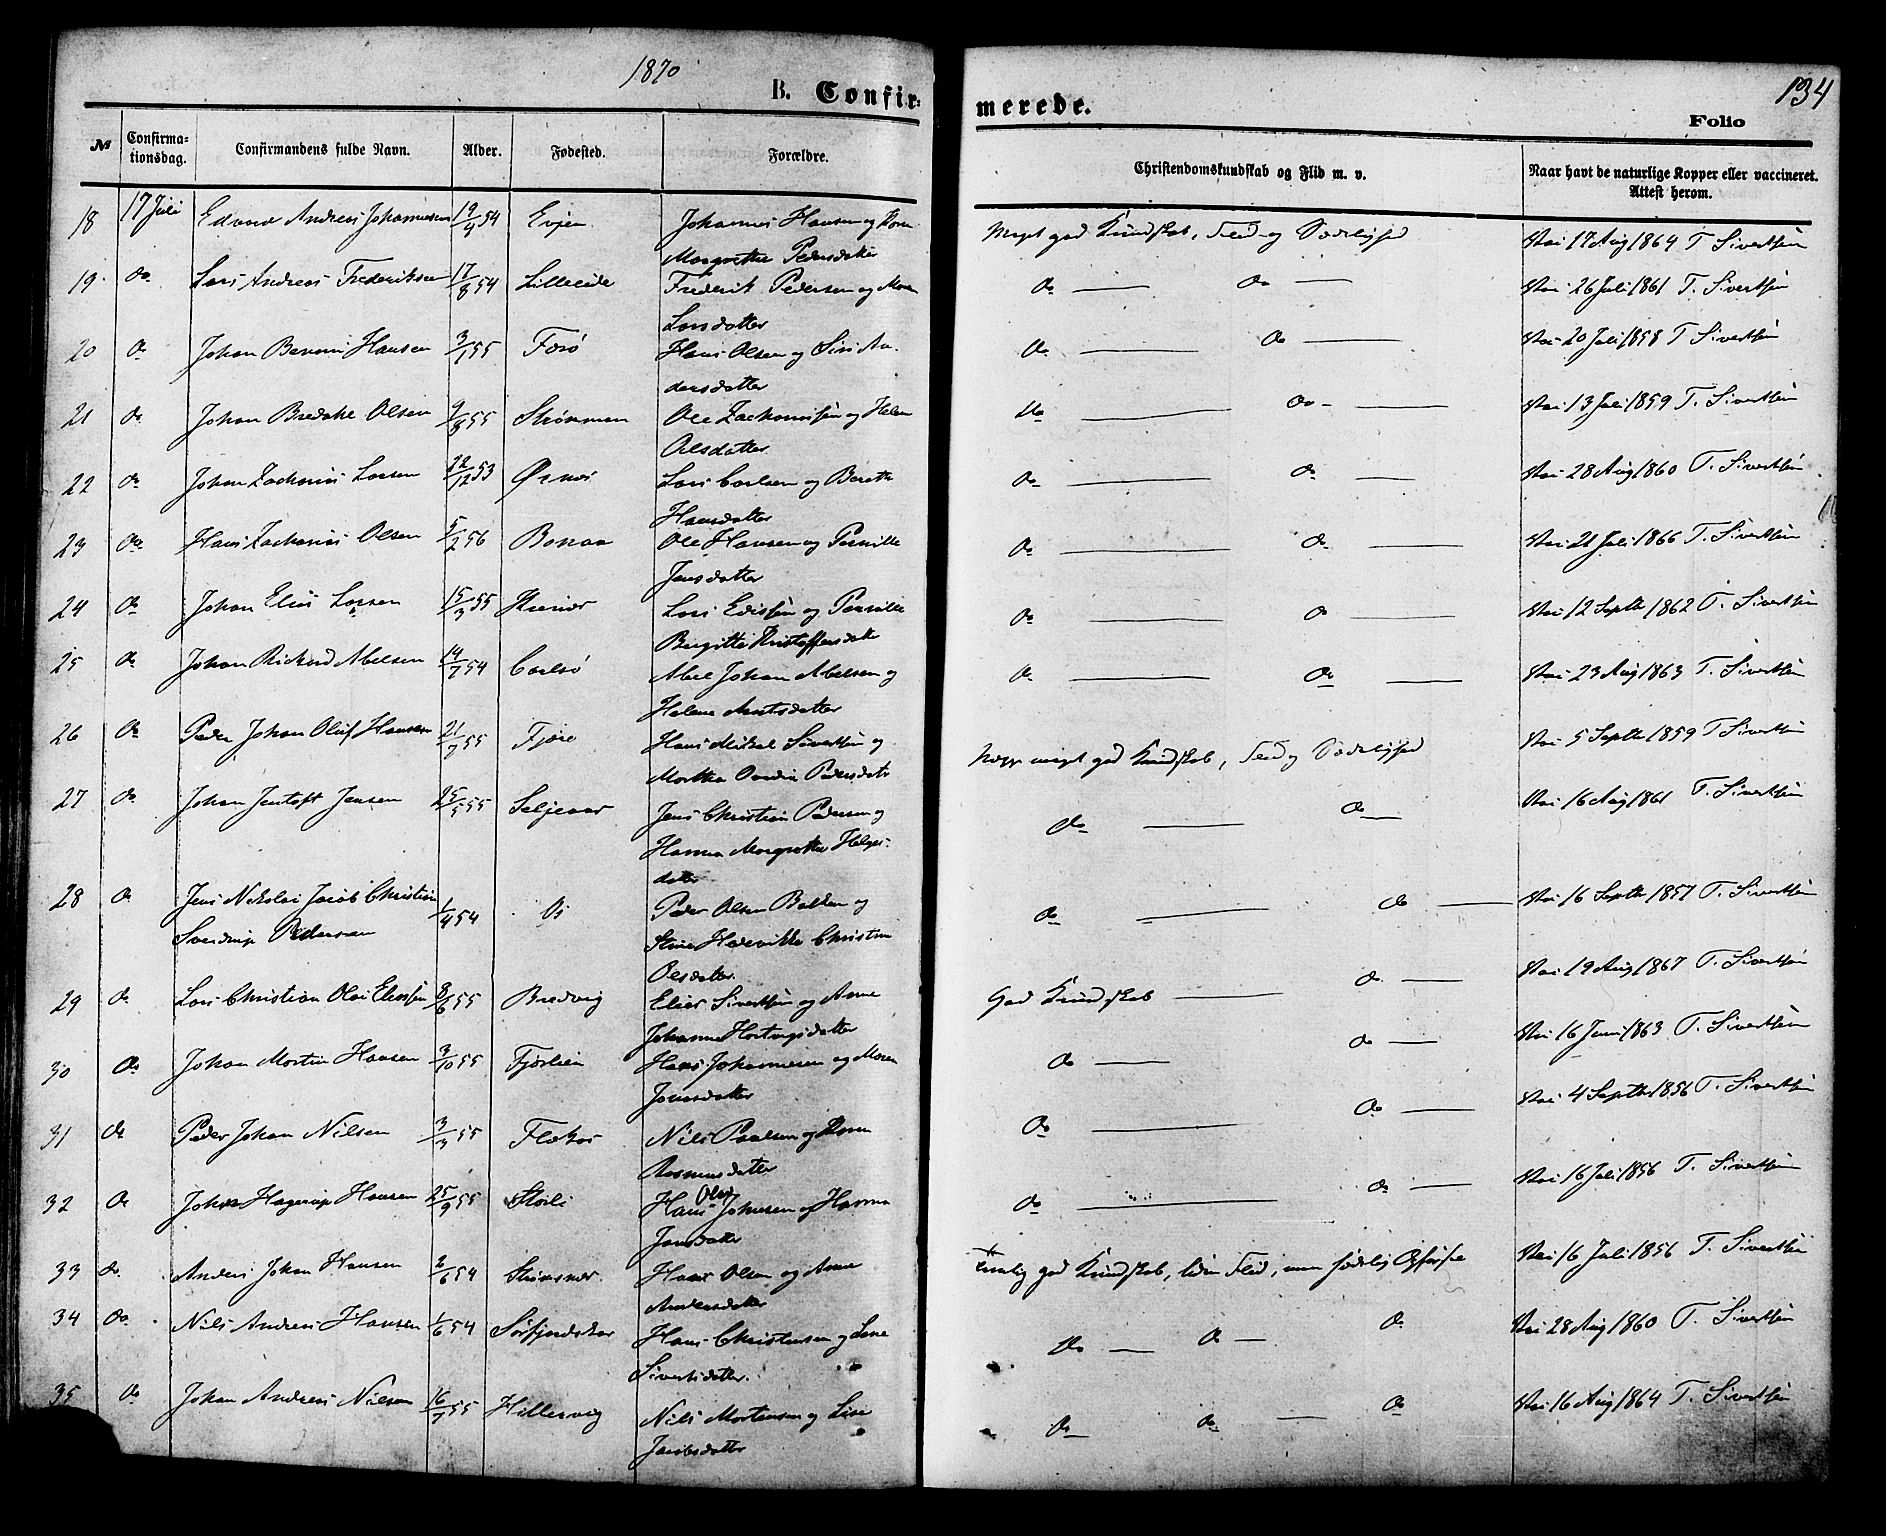 1870
B. Confir-
merede.
134
Folio
№ Confirma-tionsdag. Confirmandens fulde Navn. Alder. Fødested. Forældre. Christendomskundskab og Flid m. v. Naar havt de naturlige Kopper eller vaccineret. Attest herom.
18 17 Juli Edvard Andreas Johannessen 19/4 54 Evjen Johannes Hansen og
Margrethe Pedersdatter Meget god Kundskab, Flid og Sædelighed 17 Aug 1864 T. Sivertsen
19 do Lars Andreas Frederiksen 17/8 54 Lilleeide Frederik Pedersen og Maren
Larsdatter do do 26 Juli 1861 T. Sivertsen
20 do Johan Hansen 3/1 55 Forø Hans Olsen og Siri An-
dersdatter do do 20 Juli 1858 T. Sivertsen
21 do Johan Olsen 9/8 55 Strømmen Ole Zachariasen og Helene
Olsdatter do do 13 Juli 1859 T. Sivertsen
22 do Johan Zacharias Larsen 22/12 53 Ørnes Lars Carlsen og Berethe
Hansdatter do do 28 Aug 1860 T. Sivertsen
23 do Hans Zacharias Olsen 5/2 56 Bonaa Ole Hansen og Pernille
Jensdatter do do 21 Juli 1866 T. Sivertsen
24 do Johan Elias Larsen 15/3 55 Lars og Pernille
Birgitte Kristoffersdatter do do 12 Septbr 1862 T. Sivertsen
25 do Johan Rickard Abelsen 14/7 54 Carlsø Abel Johan Abelsen og
Helene Arntsdatter do do 23 Aug 1863 T. Sivertsen
26 do Peder Johan Oluf Hansen 21/7 55 Fjære Hans Mikal Sivertsen og
Martha Pedersdatr meget god Kundskab, Flid og Sædelighed 5 Septbr 1859 T. Sivertsen
27 do Johan Jentoft Jensen 25/5 55 Seljeaar Jens Christian Pedersen og
Hanna Margrethe Helges-
datter do do 16 Aug 1861 T. Sivertsen
28 do Jens Nikolai Jacob Christian
Sverdrup Pedersen 1/4 54 Os Peder Olsen Bakken og
Stine Hedevikke Christine
Olsdatter do do 16 Septbr 1857 T. Sivertsen
29 do Lars Christian Olai Eliassen 8/6 55 Bredvig Elias Sivertsen og Anne
Johanna Hartvigsdatter God Kundskab do 19 Aug 1867 T. Sivertsen
30 do Johan Martin Hansen 3/10 55 Hans Johannesen og Maren
Jonasdatter do do 16 Juni 1863 T. Sivertsen
31 do Peder Johan Nilsen 3/3 55 Nils Paalsen og
Rasmusdatter do do 4 Septbr 1856 T. Sivertsen
32 do Johan Hagerup Hansen 25/9 55 Storli Hans Olai Johnsen og Hanna
Jonsdatter do do 16 Juli 1856 T. Sivertsen
33 do Anders Johan Hansen 2/6 54 Strømsnes Hans Olsen og Anne
Andersdatter Temelig god Kundskab, liden Flid, men sædelig Opførsel 16 Juli 1856 T. Sivertsen
34 do Nils Andreas Hansen 1/6 54 Sørfjordskar Hans Christensen og Lene
Sivertsdatter do do do 28 Aug 1860 T. Sivertsen
35 do Johan Andreas Nilsen 16/7 55 Hillesvig Nils Mortensen og Lise
Jacobsdatter do do do 16 Aug 1864 T. Sivertsen